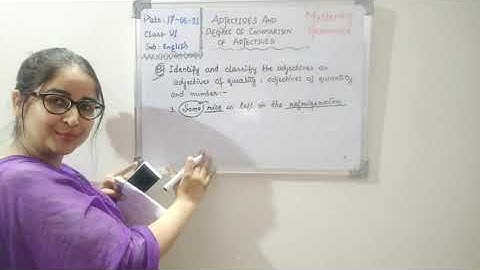 Date: 17-06-21
Class: VI
Sub: English
ADJECTIVES AND
DEGREE OF COMPARISON
OF ADJECTIVES
Mastering
Grammar
Identify and classify the adjectives as
adjectives of quality, adjectives of quantity
and number:-
1. Some rice is left in the refrigerator.